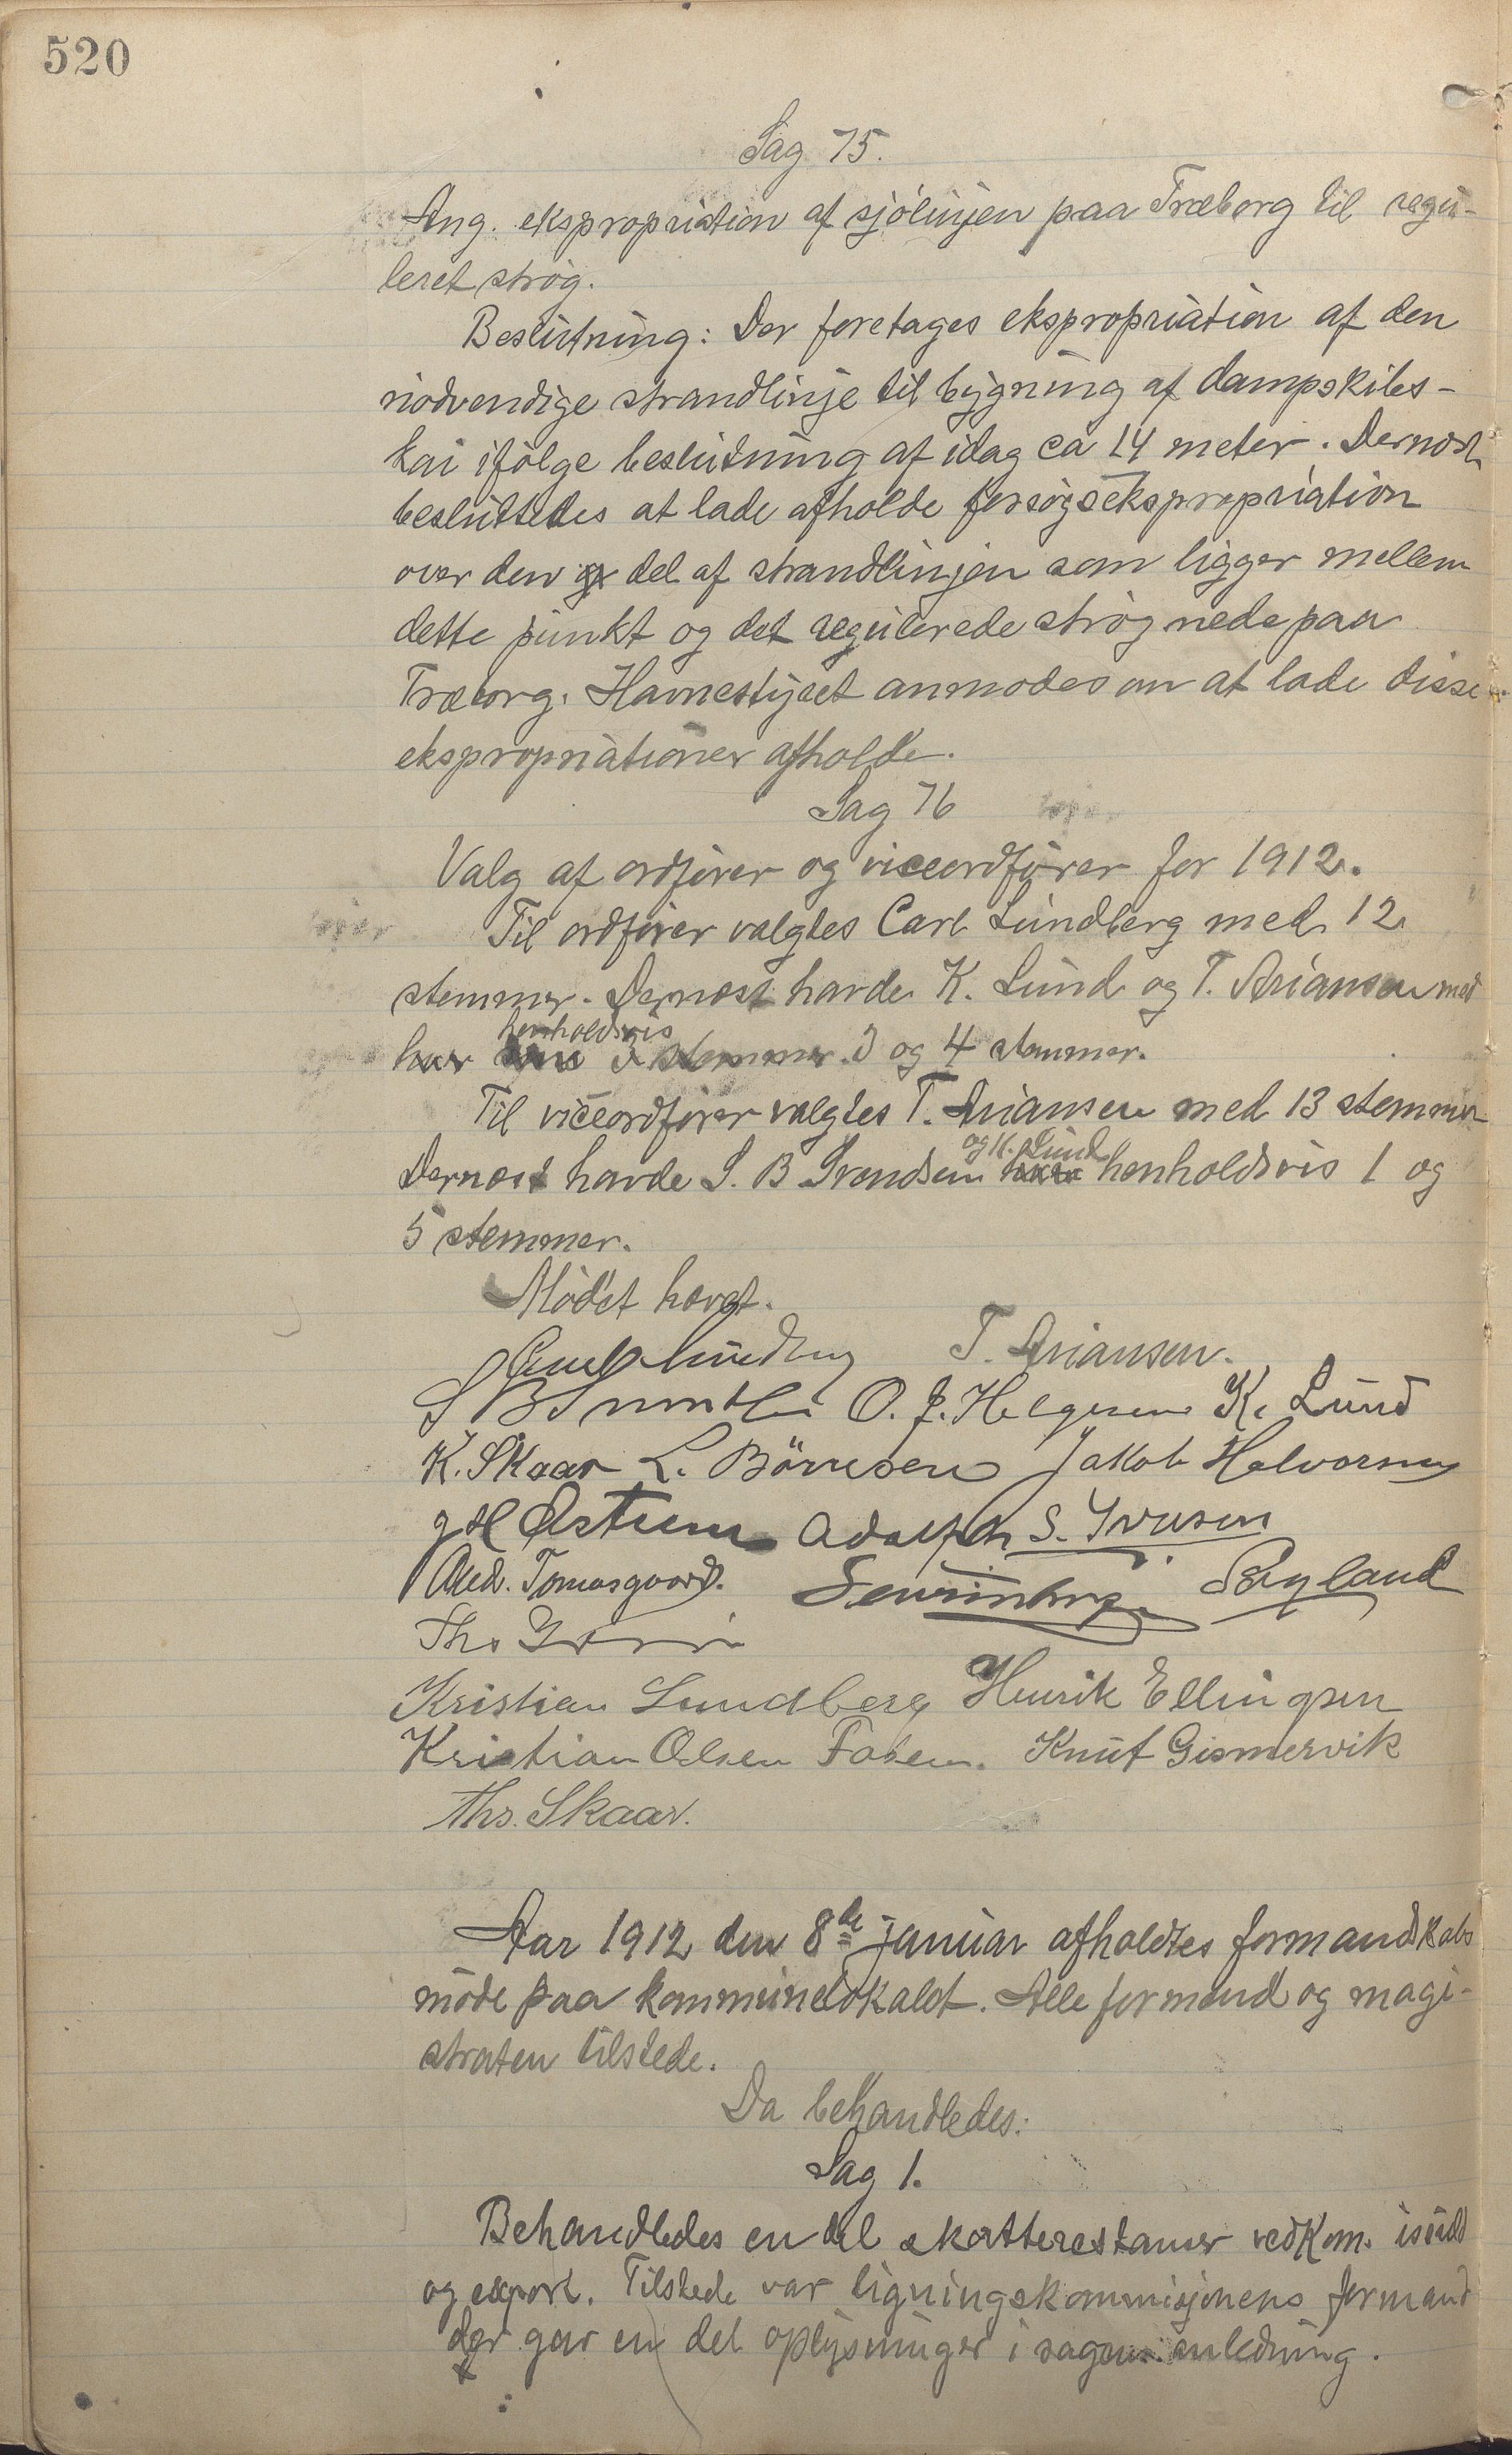 520
Sag 75.
Ang. ekspropriation af sjölinjen paa Træborg til regu-
leret strøg.
Beslutning: Der foretages ekspropriation af den
nödvendige strandlinje til bygning af dampskibs-
kai ifölge beslutning af idag ca 14 meter. Dernæst
besluttedes at lade afholde forsøgsekspropriation
over den del af strandlinjen som ligger mellem
dette punkt og det regulerede strøg nede paa
Træborg. Havnestyret anmodes om at lade disse
ekspropriationer afholde.
Sag 76
Valg af ordfører og viceordfører for 1912.
Til ordfører valgtes Carl Lundberg med 12
stemmer. Dernæst havde K. Lund og T. Ariansen med
henholdsvis
hver 3 stemmer. 3 og 4 stemmer.
Til viceordfører valgtes T. Ariansen med 13 stemmer
og K. Lund
Dernæst havde S. B Svendsen henholdsvis 1 og
5 stemmer.
Mødet hævet.
Carl Lundberg T. Ariansen.
S B O. J. Helgesen K. Lund
K. Skaar L. Börresen Jakob Halvorsen
Østrem Adolph S. Iversen
Med. Tomasgaard. Severin Berge Røgland
Ths
Kristian Lundberg Henrik Ellingsen
Kristian Olsen Fosen. Knut Gismervik
Ths. Skaar.
Aar 1912 den 8de januar afholdtes formandskabs
möde paa kommunelokalet. Alle formænd og magi-
straten tilstede.
Da behandledes:
Sag 1.
Behandledes en del skatterestanser vedkom. isild
og export. Tilstede var ligningskommisjonens formand
der gav en del oplysninger i sagens anledning.